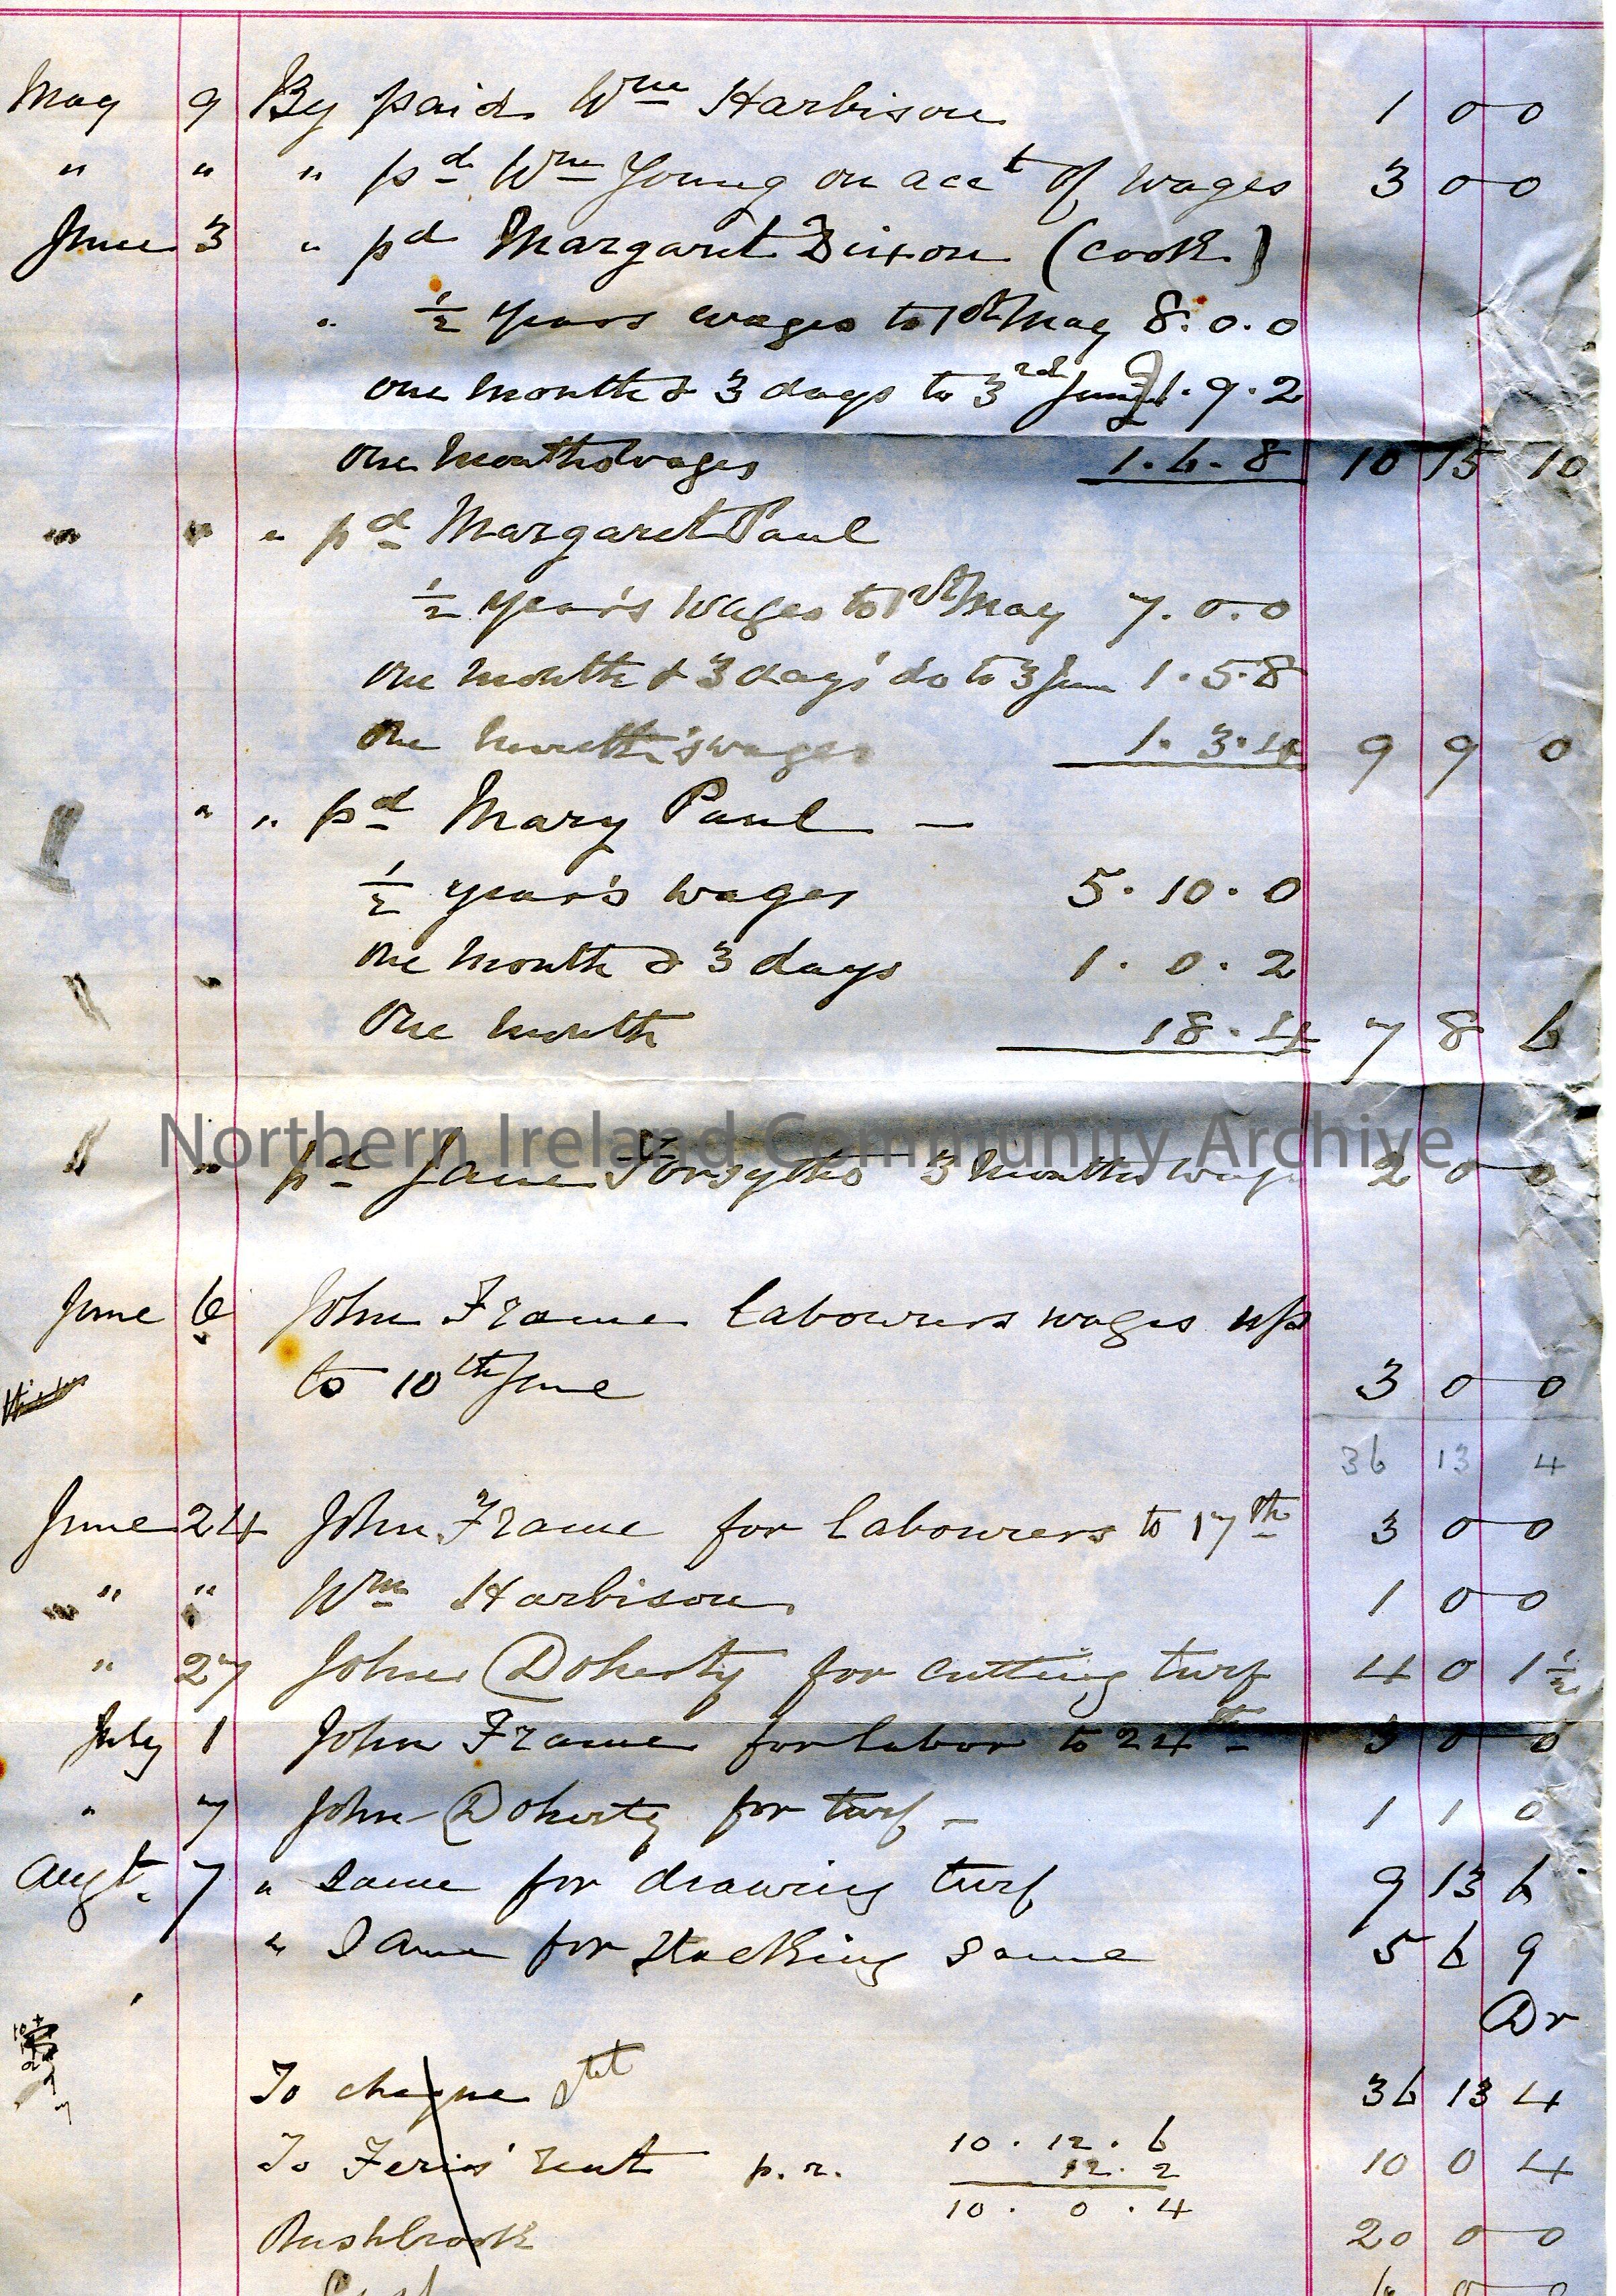 May 9 By paid Wm Harbison 1 0 0
" " " pd Wm Young on acct of wages 3 0 0
June 3 " pd Margaret Dixon (cook)
" ½ years wages to 1st May 8.0.0
one month & 3 days to 3rd June 1.9.2
One months wages 1.6.8 10 15 10
" " " pd Margaret Paul
½ year's wages to 1st May 7.0.0
One month & 3 days' do to 3 June 1.5.8
One month's wages 1.3.4 9 9 0
" " pd Mary Paul —
½ year's wages 5.10.0
One month & 3 days 1.0.2
One month 18.4 7 8 6
Northern Ireland Community Archive
" " pd Jane Forsythe 3 months wages 2 0 0
June 6 John Frame labourers wages up
to 10th June 3 0 0
36 13 4
June 24 John Frame for labourers to 17th 3 0 0
" " Wm Harbison 1 0 0
" 27 John Doherty for cutting turf 4 0 1½
July 1 John Frame for labor to 24th 3 0 0
" 7 John Doherty for turf — 1 1 0
Augt. 7 " Same for drawing turf 9 13 6
" Same for stacking same 5 6 9
Dr
To cheque stet 36 13 4
10.12.6
To Ferris' rent p.r. 12.2 10 0 4
10.0.4
Rushbrook 20 0 0